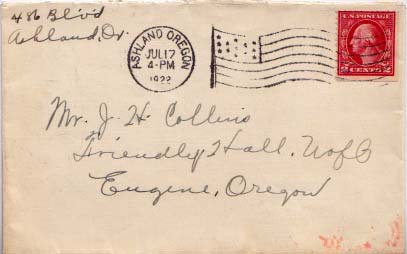 486 Blv'd
Ashland, Or.
ASHLAND OREGON
JUL 17
4-PM
1922
U.S. POSTAGE
2 CENTS 2
Mr. J. H. Collins
Friendly Hall, U of O
Eugene, Oregon